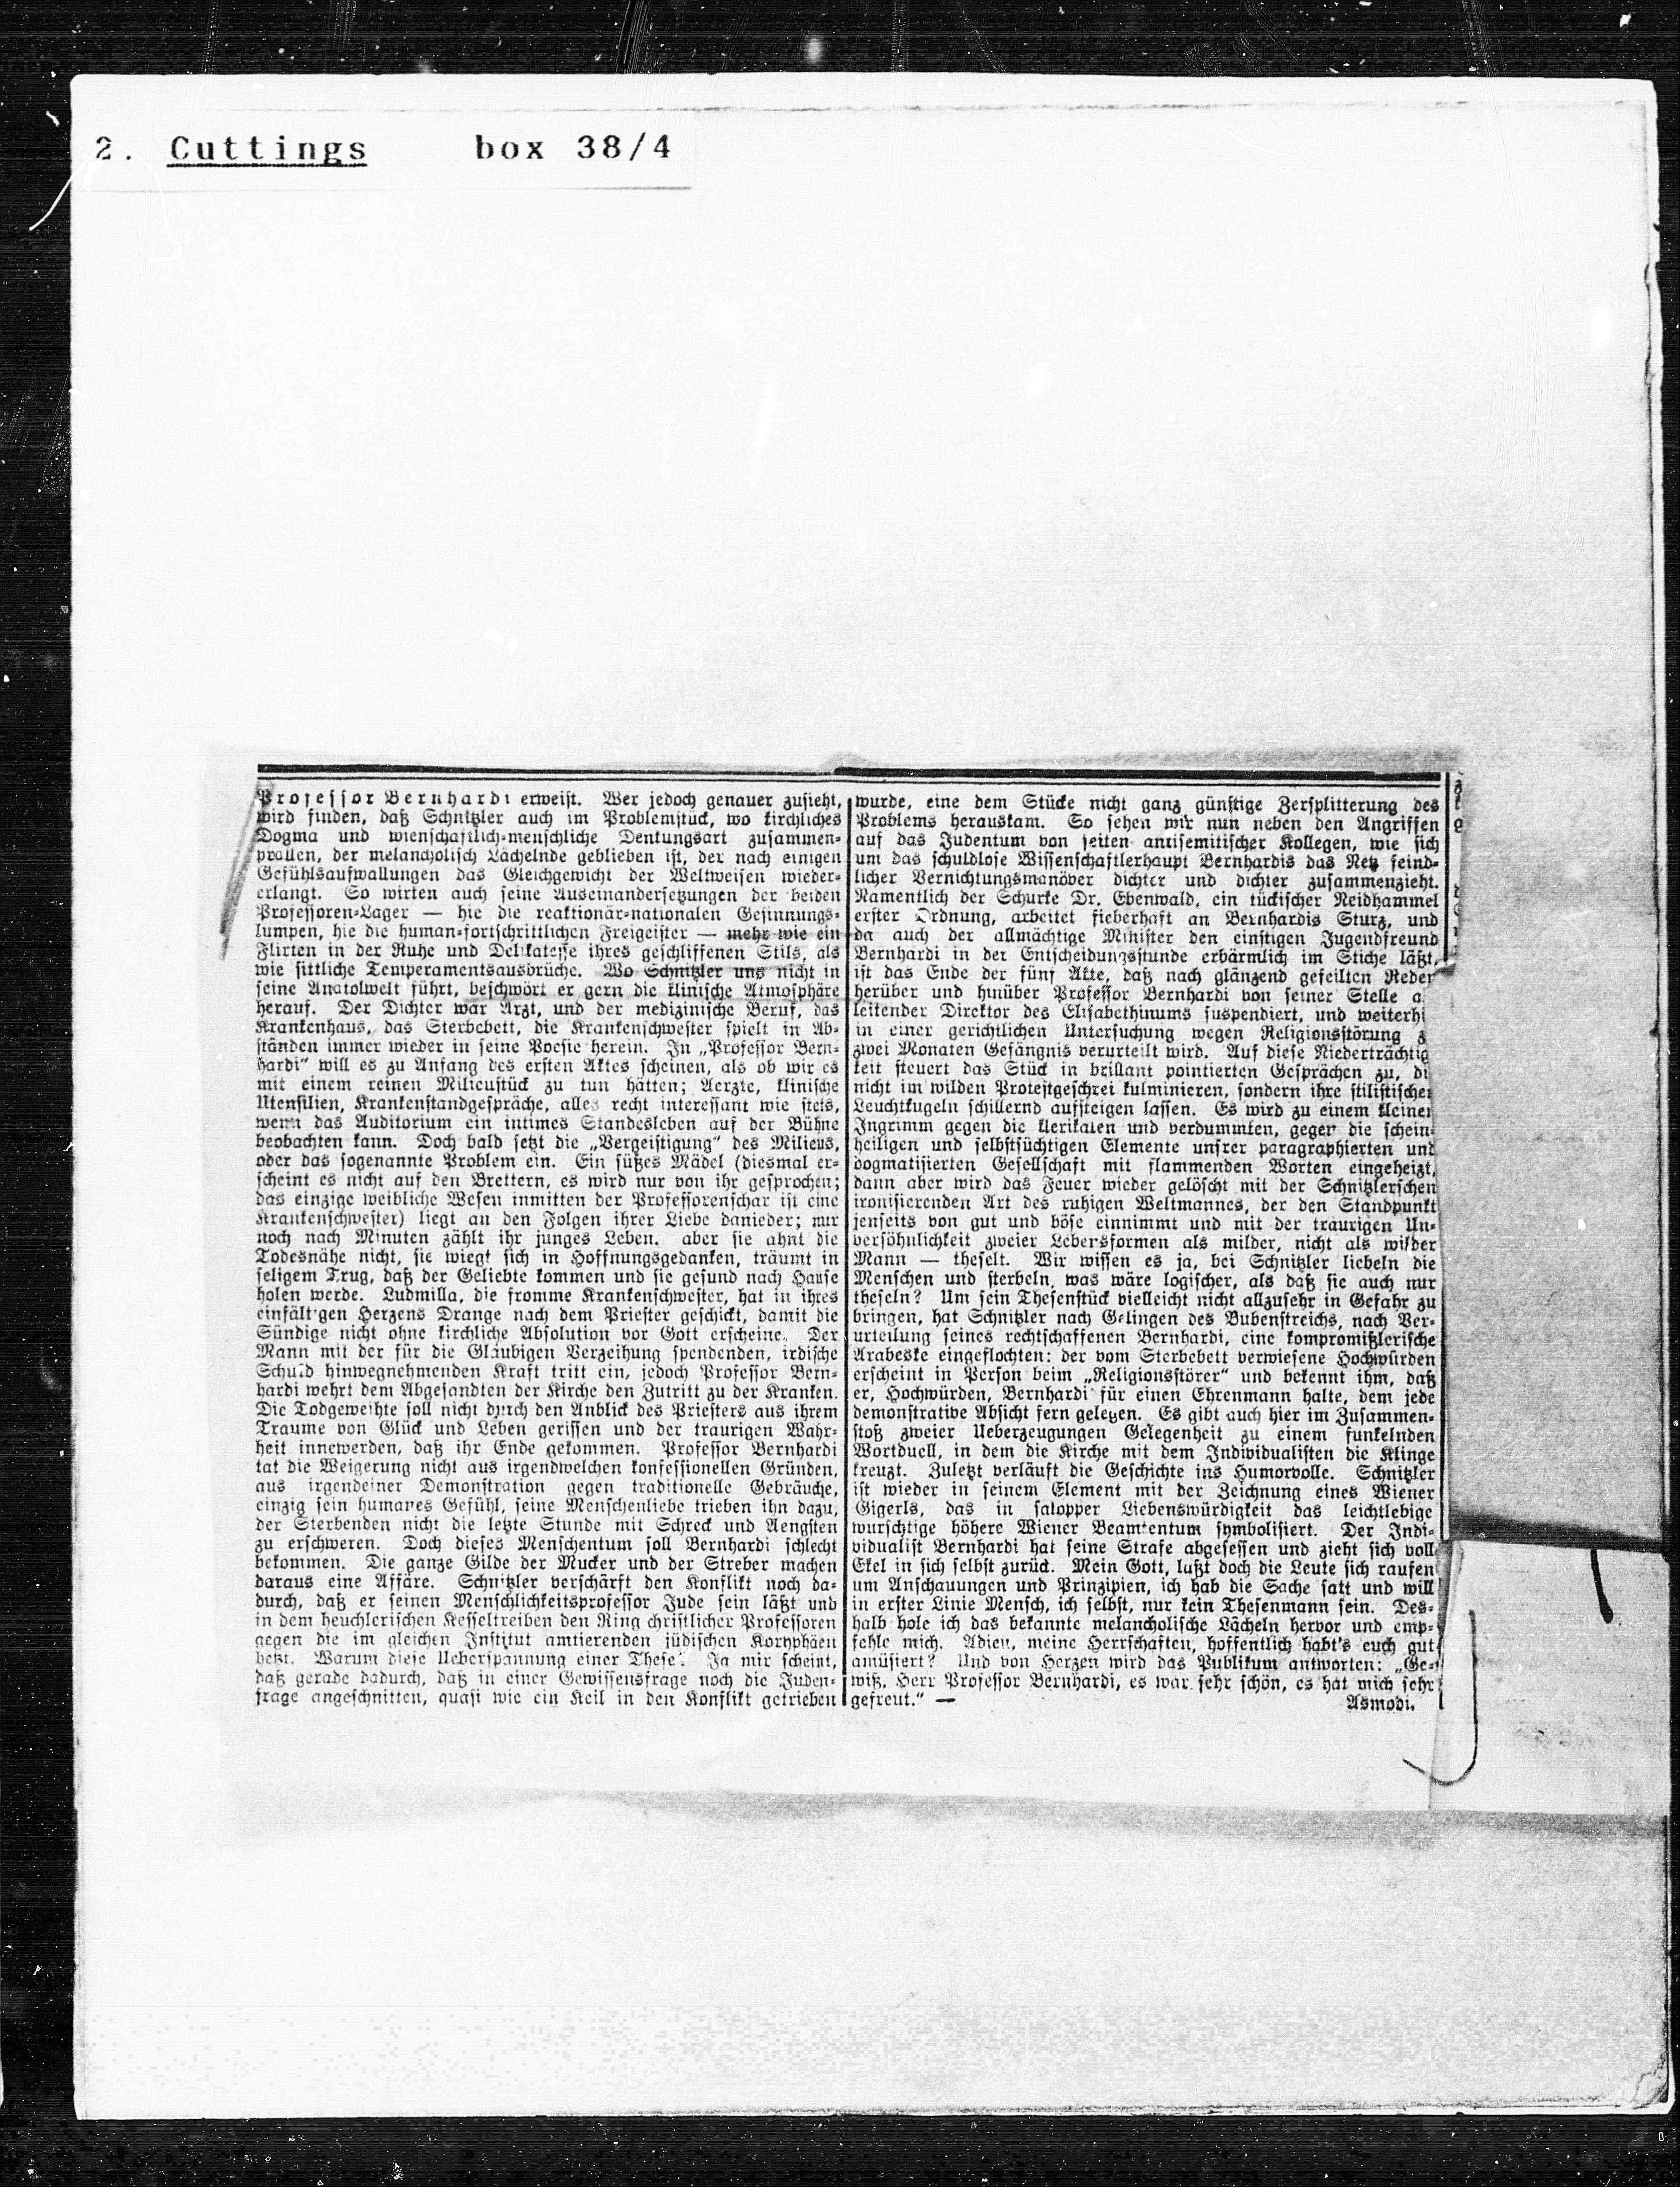 2. Cuttings box 38/4
Professor Bernhardi erweist. Wer jedoch genauer zusieht,
wird finden, daß Schnitzler auch im Problemstück, wo kirchliches
Dogma und wienschaftlich-menschliche Dentungsart zusammen-
prallen, der melancholisch Lächelnde geblieben ist, der nach einigen
Gefühlsaufwallungen das Gleichgewicht der Weltweisen wieder-
erlangt. So wirken auch seine Auseinandersetzungen der beiden
Professoren-Lager — hie die reaktionär-nationalen Gesinnungs-
lumpen, hie die human-fortschrittlichen Freigeister — mehr wie ein
Flirten in der Ruhe und Delikatesse ihres geschliffenen Stils, als
wie sittliche Temperamentsausbrüche. Wo Schnitzler uns nicht in
seine Anatolwelt führt, beschwört er gern die klinische Atmosphäre
herauf. Der Dichter war Arzt, und der medizinische Beruf, das
Krankenhaus, das Sterbebett, die Krankenschwester spielt in Ab-
ständen immer wieder in seine Poesie herein. In „Professor Bern-
hardi“ will es zu Anfang des ersten Aktes scheinen, als ob wir es
mit einem reinen Milieustück zu tun hätten; Aerzte, klinische
Utensilien, Krankenstandgespräche, alles recht interessant wie stets,
wenn das Auditorium ein intimes Standesleben auf der Bühne
beobachten kann. Doch bald setzt die „Vergeistigung“ des Milieus,
oder das sogenannte Problem ein. Ein süßes Mädel (diesmal er-
scheint es nicht auf den Brettern, es wird nur von ihr gesprochen;
das einzige weibliche Wesen inmitten der Professorenschar ist eine
Krankenschwester) liegt an den Folgen ihrer Liebe danieder; nur
noch nach Minuten zählt ihr junges Leben. aber sie ahnt die
Todesnähe nicht, sie wiegt sich in Hoffnungsgedanken, träumt in
seligem Trug, daß der Geliebte kommen und sie gesund nach Hause
holen werde. Ludmilla, die fromme Krankenschwester, hat in ihres
einfält'gen Herzens Drange nach dem Priester geschickt, damit die
Sündige nicht ohne kirchliche Absolution vor Gott erscheine. Der
Mann mit der für die Gläubigen Verzeihung spendenden, irdische
Schuld hinwegnehmenden Kraft tritt ein, jedoch Professor Bern-
hardi wehrt dem Abgesandten der Kirche den Zutritt zu der Kranken.
Die Todgeweihte soll nicht durch den Anblick des Priesters aus ihrem
Traume von Glück und Leben gerissen und der traurigen Wahr-
heit innewerden, daß ihr Ende gekommen. Professor Bernhardi
tat die Weigerung nicht aus irgendwelchen konfessionellen Gründen,
aus irgendeiner Demonstration gegen traditionelle Gebräuche,
einzig sein humanes Gefühl, seine Menschenliebe trieben ihn dazu,
der Sterbenden nicht die letzte Stunde mit Schreck und Aengsten
zu erschweren. Doch dieses Menschentum soll Bernhardi schlecht
bekommen. Die ganze Gilde der Mucker und der Streber machen
daraus eine Affäre. Schnitzler verschärft den Konflikt noch da-
durch, daß er seinen Menschlichkeitsprofessor Jude sein läßt und
in dem heuchlerischen Kesseltreiben den Ring christlicher Professoren
gegen die im gleichen Institut amtierenden jüdischen Koryphäen
hetzt. Warum diese Ueberspannung einer These? Ja mir scheint,
daß gerade dadurch, daß in einer Gewissensfrage noch die Juden-
frage angeschnitten, quasi wie ein Keil in den Konflikt getrieben
wurde, eine dem Stücke nicht ganz günstige Zersplitterung des
Problems herauskam. So sehen wir nun neben den Angriffen
auf das Judentum von seiten antisemitischer Kollegen, wie sich
um das schuldlose Wissenschaftlerhaupt Bernhardis das Netz feind-
licher Vernichtungsmanöver dichter und dichter zusammenzieht.
Namentlich der Schurke Dr. Ebenwald, ein tückischer Neidhammel
erster Ordnung, arbeitet fieberhaft an Bernhardis Sturz, und
da auch der allmächtige Minister den einstigen Jugendfreund
Bernhardi in der Entscheidungsstunde erbärmlich im Stiche läßt,
ist das Ende der fünf Akte, daß nach glänzend gefeilten Reder
herüber und hinüber Professor Bernhardi von seiner Stelle a
leitender Direktor des Elisabethinums suspendiert, und weiterhi
in einer gerichtlichen Untersuchung wegen Religionsstörung z
zwei Monaten Gefängnis verurteilt wird. Auf diese Niederträchtig
keit steuert das Stück in brillant pointierten Gesprächen zu, di
nicht im wilden Protestgeschrei kulminieren, sondern ihre stilistischer
Leuchtkugeln schillernd aufsteigen lassen. Es wird zu einem kleiner
Ingrimm gegen die klerikalen und verdummten, gegen die schein-
heiligen und selbstsüchtigen Elemente unsrer paragraphierten und
dogmatisierten Gesellschaft mit flammenden Worten eingeheizt,
dann aber wird das Feuer wieder gelöscht mit der Schnitzlerschen
ironisierenden Art des ruhigen Weltmannes, der den Standpunkt
jenseits von gut und böse einnimmt und mit der traurigen Un-
versöhnlichkeit zweier Lebensformen als milder, nicht als wilder
Mann — theselt. Wir wissen es ja, bei Schnitzler liebeln die
Menschen und sterbeln, was wäre logischer, als daß sie auch nur
theseln? Um sein Thesenstück vielleicht nicht allzusehr in Gefahr zu
bringen, hat Schnitzler nach Gelingen des Bubenstreichs, nach Ver-
urteilung seines rechtschaffenen Bernhardi, eine kompromißlerische
Arabeske eingeflochten: der vom Sterbebett verwiesene Hochwürden
erscheint in Person beim „Religionsstörer“ und bekennt ihm, daß
er, Hochwürden, Bernhardi für einen Ehrenmann halte, dem jede
demonstrative Absicht fern gelegen. Es gibt auch hier im Zusammen-
stoß zweier Ueberzeugungen Gelegenheit zu einem funkelnden
Wortduell, in dem die Kirche mit dem Individualisten die Klinge
kreuzt. Zuletzt verläuft die Geschichte ins Humorvolle. Schnitzler
ist wieder in seinem Element mit der Zeichnung eines Wiener
Gigerls, das in salopper Liebenswürdigkeit das leichtlebige
wurschtige höhere Wiener Beamtentum symbolisiert. Der Indi-
vidualist Bernhardi hat seine Strafe abgesessen und zieht sich voll
Ekel in sich selbst zurück. Mein Gott, laßt doch die Leute sich raufen
um Anschauungen und Prinzipien, ich hab die Sache satt und will
in erster Linie Mensch, ich selbst, nur kein Thesenmann sein. Des-
halb hole ich das bekannte melancholische Lächeln hervor und emp-
fehle mich. Adieu, meine Herrschaften, hoffentlich habt's euch gut
amüsiert? Und von Herzen wird das Publikum antworten: „Ge-
wiß, Herr Professor Bernhardi, es war sehr schön, es hat mich sehr
gefreut.“ —
Asmodi.